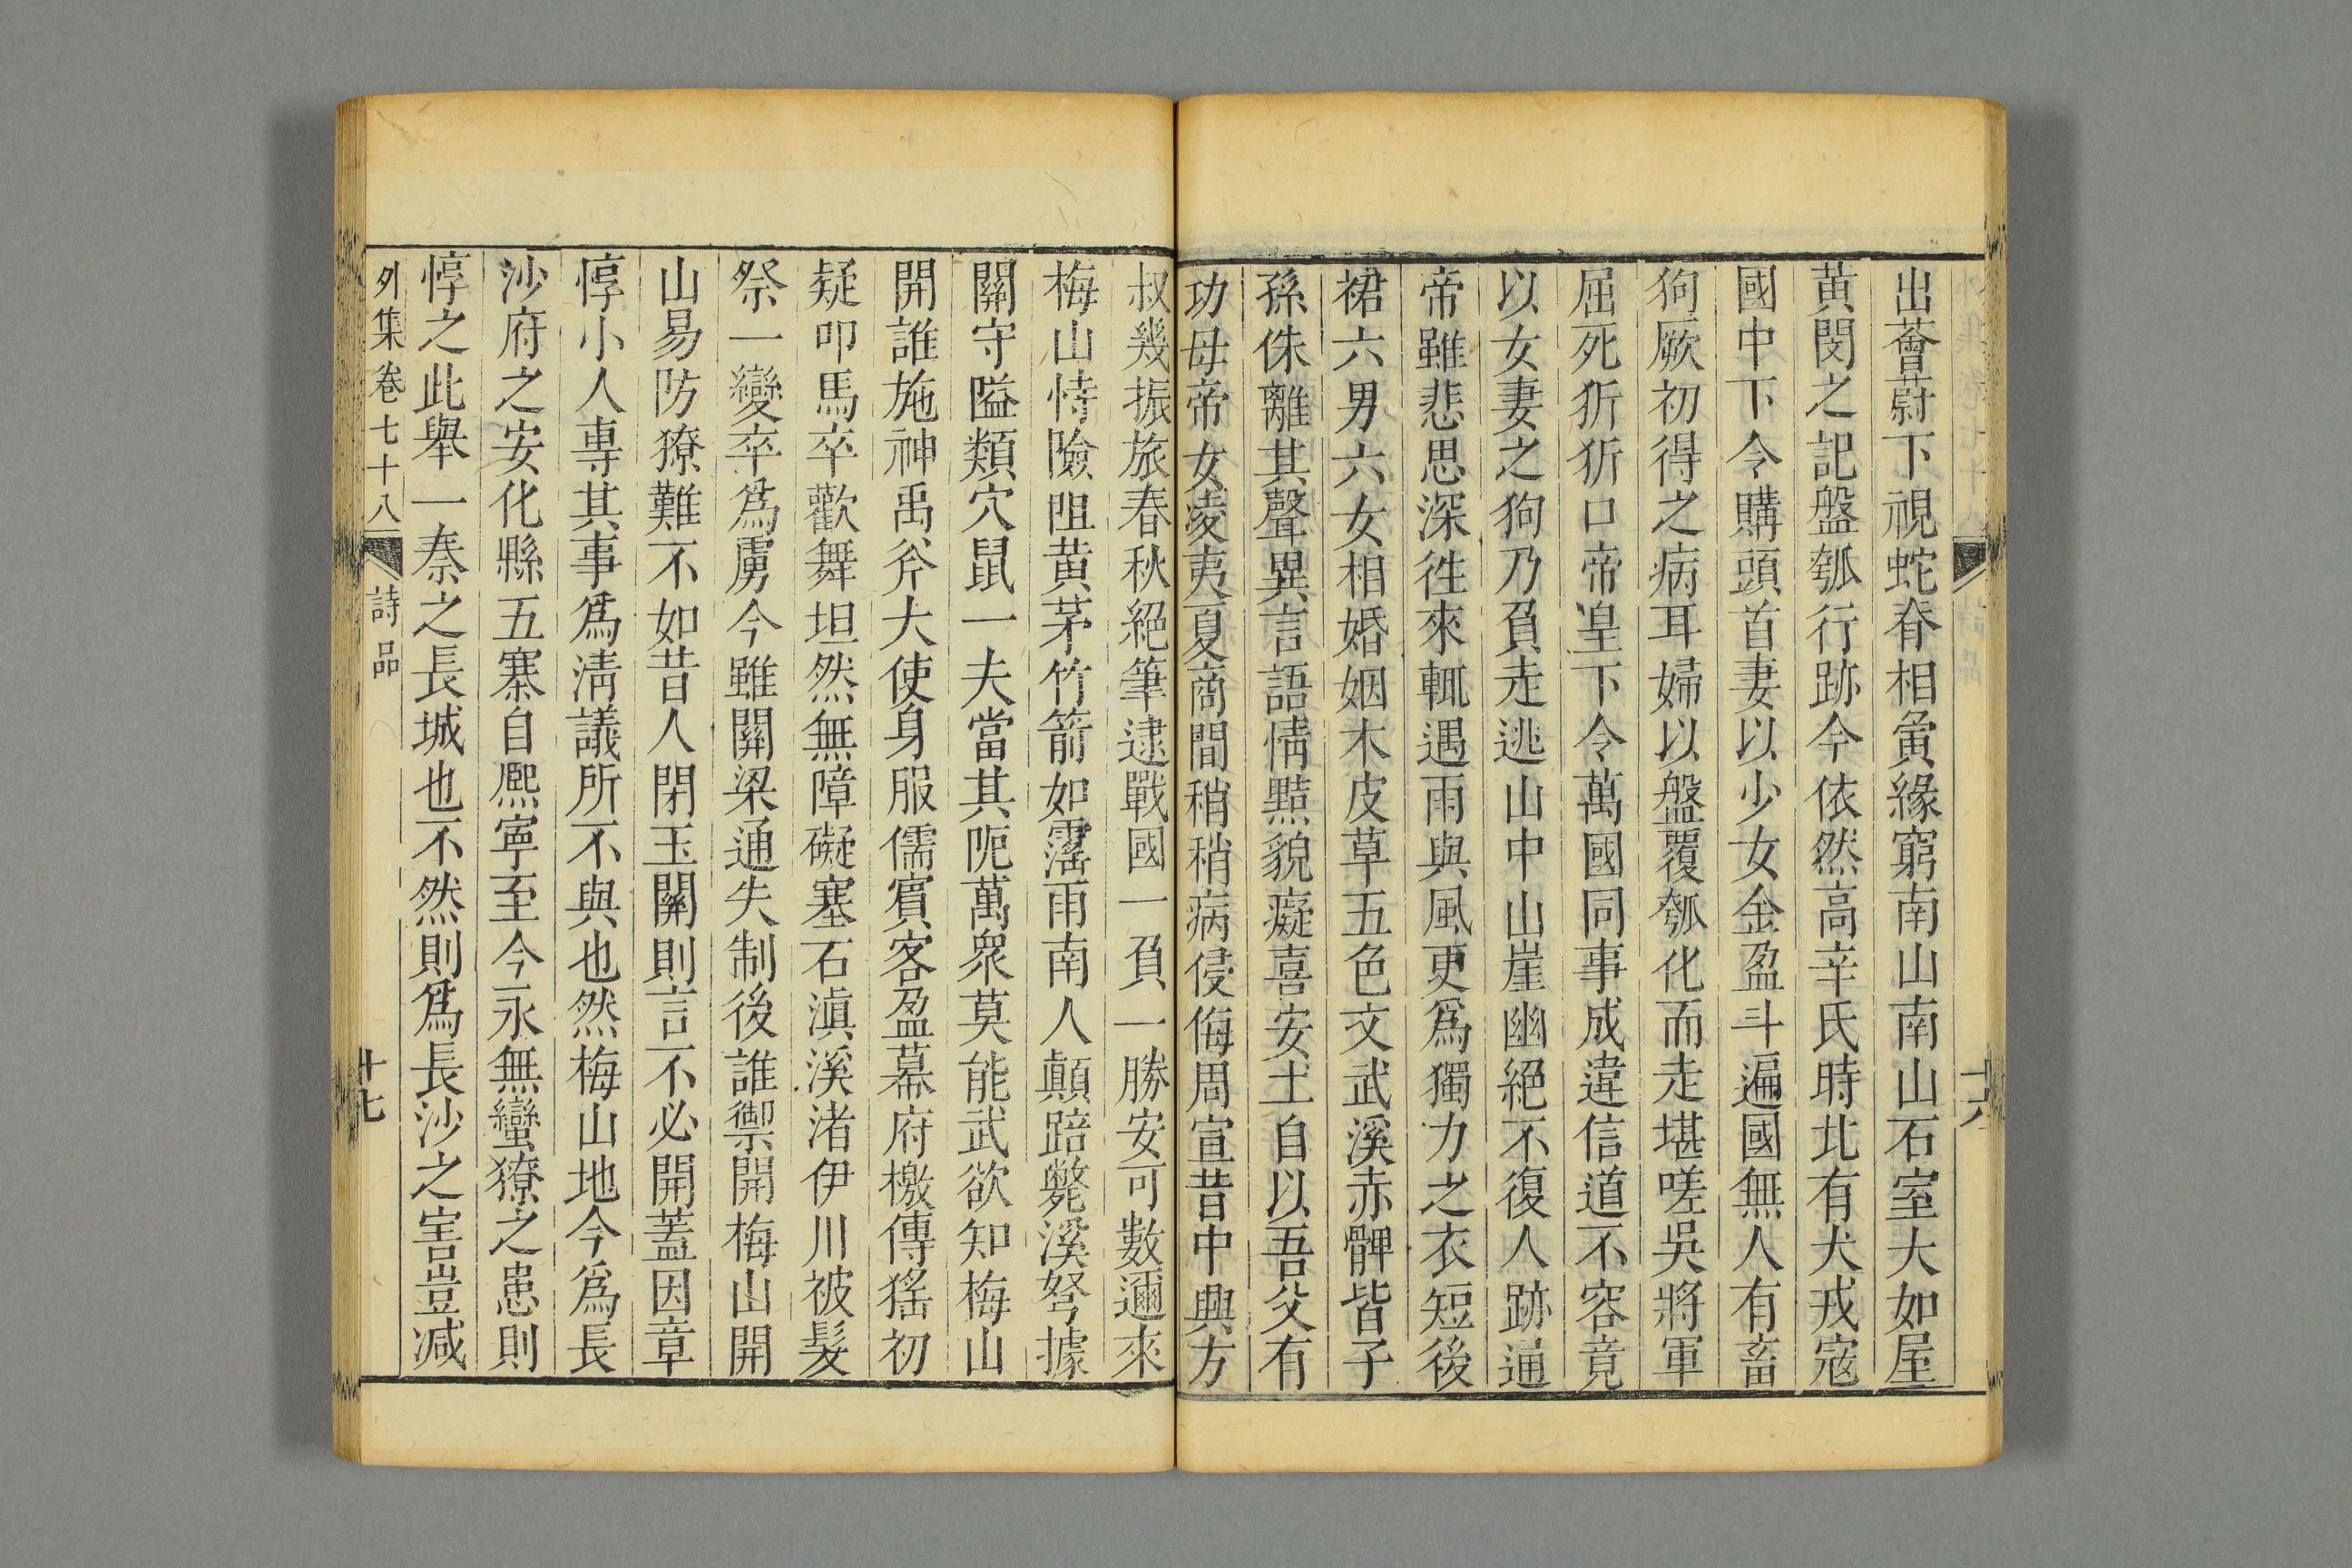 出薈蔚下視蛇脊相夤緣窮南山南山石室大如屋
黄閔之記盤瓠行跡今依然高辛氏時北有犬戎寇
國中下令購頭首妻以少女金盈斗遍國無人有畜
狗厥初得之病耳婦以盤覆瓠化而走堪嗟吳將軍
屈死狾狾口帝皇下令萬國同事成違信道不容竟
以女妻之狗乃負走逃山中山崖幽絕不復人跡通
帝雖悲思深徃來輒遇雨與風更爲獨力之衣短後
裙六男六女相婚姻木皮草五色文武溪赤髀皆子
孫侏離其聲異言語情黠貌癡喜安土自以吾父有
功母帝女凌夷夏商間稍稍病侵侮周宣昔中興方
叔幾振旅春秋絕筆逮戰國一負一勝安可數邇來
梅山恃險阻黄茅竹箭如霪雨南人顛踣斃溪弩據
關守隘類穴鼠一夫當其阨萬衆莫能武欲知梅山
開誰施神禹斧大使身服儒賓客盈幕府檄傳猺初
疑叩馬卒歡舞坦然無障礙塞石滇溪渚伊川被髮
祭一變卒爲虜今雖關梁通失制後誰禦開梅山開
山易防獠難不如昔人閉玉關則言不必開蓋因章
惇小人專其事爲淸議所不與也然梅山地今爲長
沙府之安化縣五寨自熈寧至今永無蠻獠之患則
惇之此舉一秦之長城也不然則爲長沙之害豈减
外集卷七十八 詩品 十七